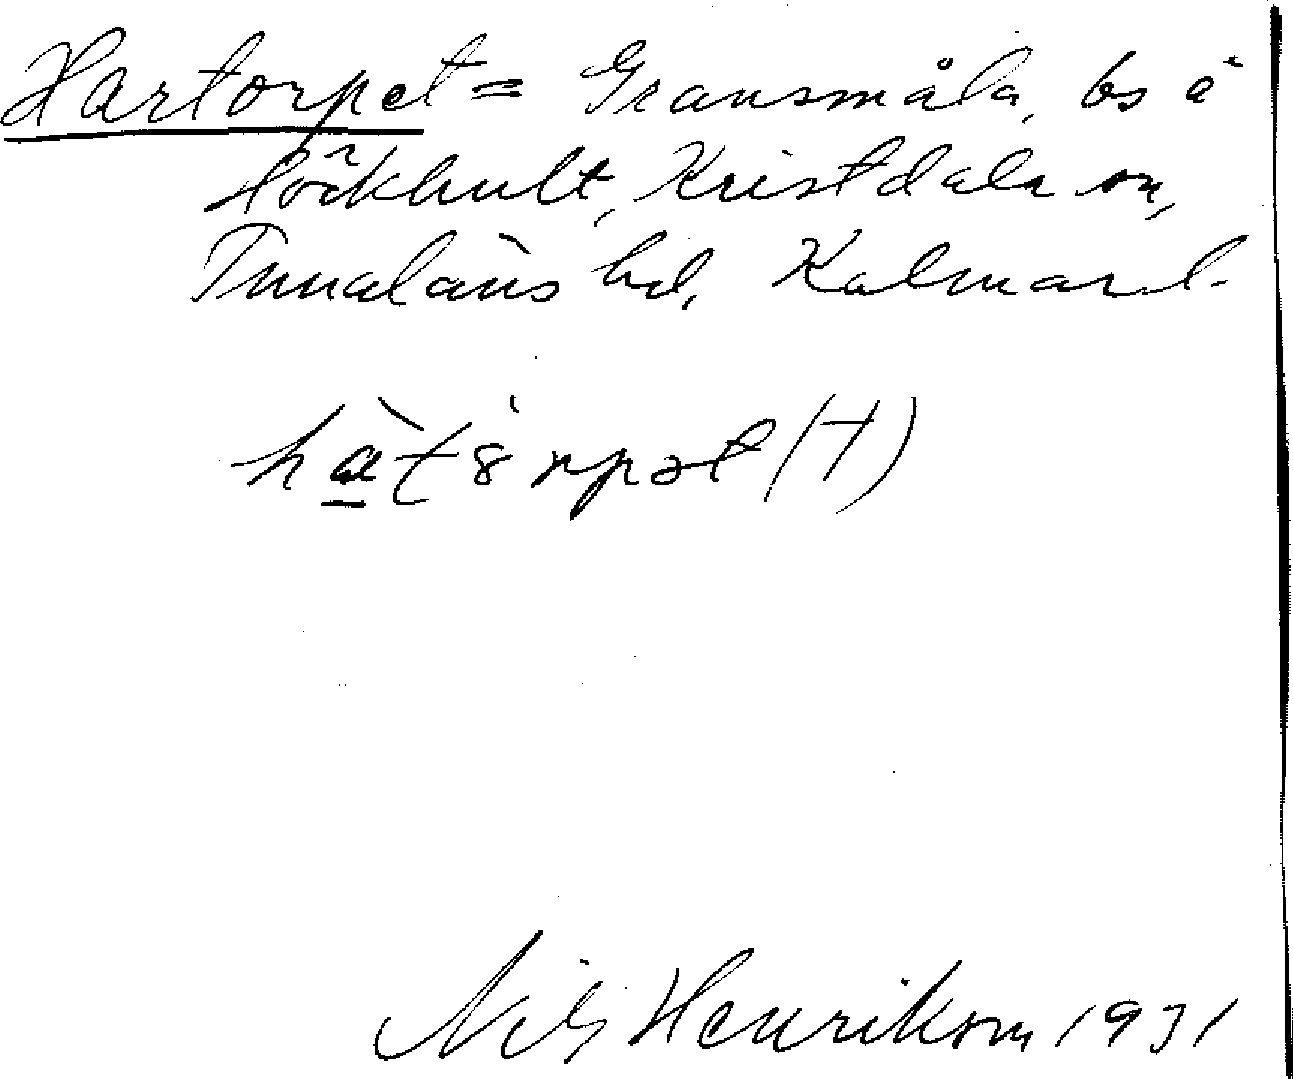 Hartorpet = Gransmåla, bs å
Lökhult, Kristdala sn,
Tunaläns hd, Kalmarl.
hàt8rpət (†)
Nils Henrikson 1931